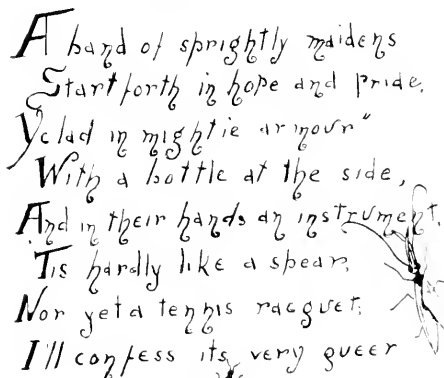 A band of sprightly maidens
Start forth in hope and pride,
Yclad in mightie armour"
With a bottle at the side,
And in their hands an instrument,
Tis hardly like a spear,
Nor yet a tennis racquet,
I'll confess its very queer